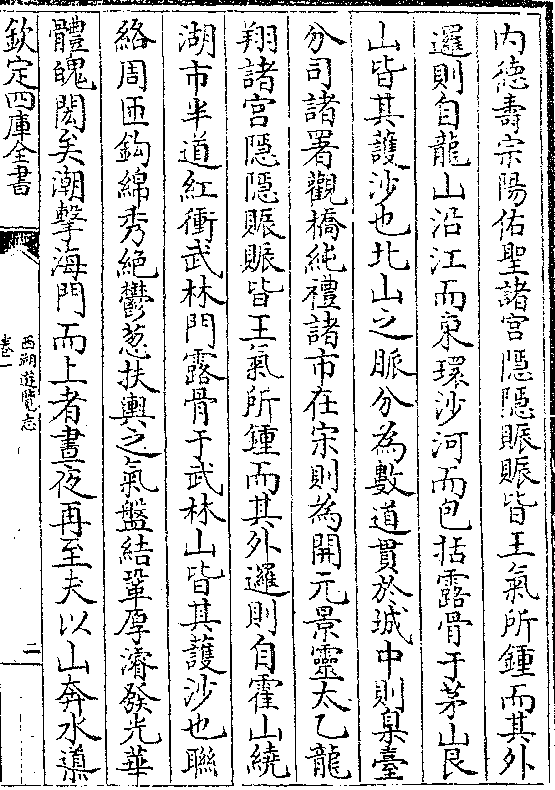 内德壽宗陽佑聖諸宫隠隠賑賑皆王氣所鍾而其外
邏則自龍山沿江而東環沙河而包括露骨于茅山艮
山皆其護沙也北山之脈分為數道貫於城中則臬臺
分司諸署觀橋純禮諸市在宋則為開元景靈太乙龍
翔諸宫隠隠賑賑皆王氣所鍾而其外邏則自霍山繞
湖市半道紅衝武林門露骨于武林山皆其護沙也聯
絡周匝鈎綿秀絶鬱葱扶輿之氣盤結鞏厚濬發光華
體魄閎矣潮擊海門而上者晝夜再至夫以山奔水導
欽定四庫全書
西湖遊覽志
卷一
二